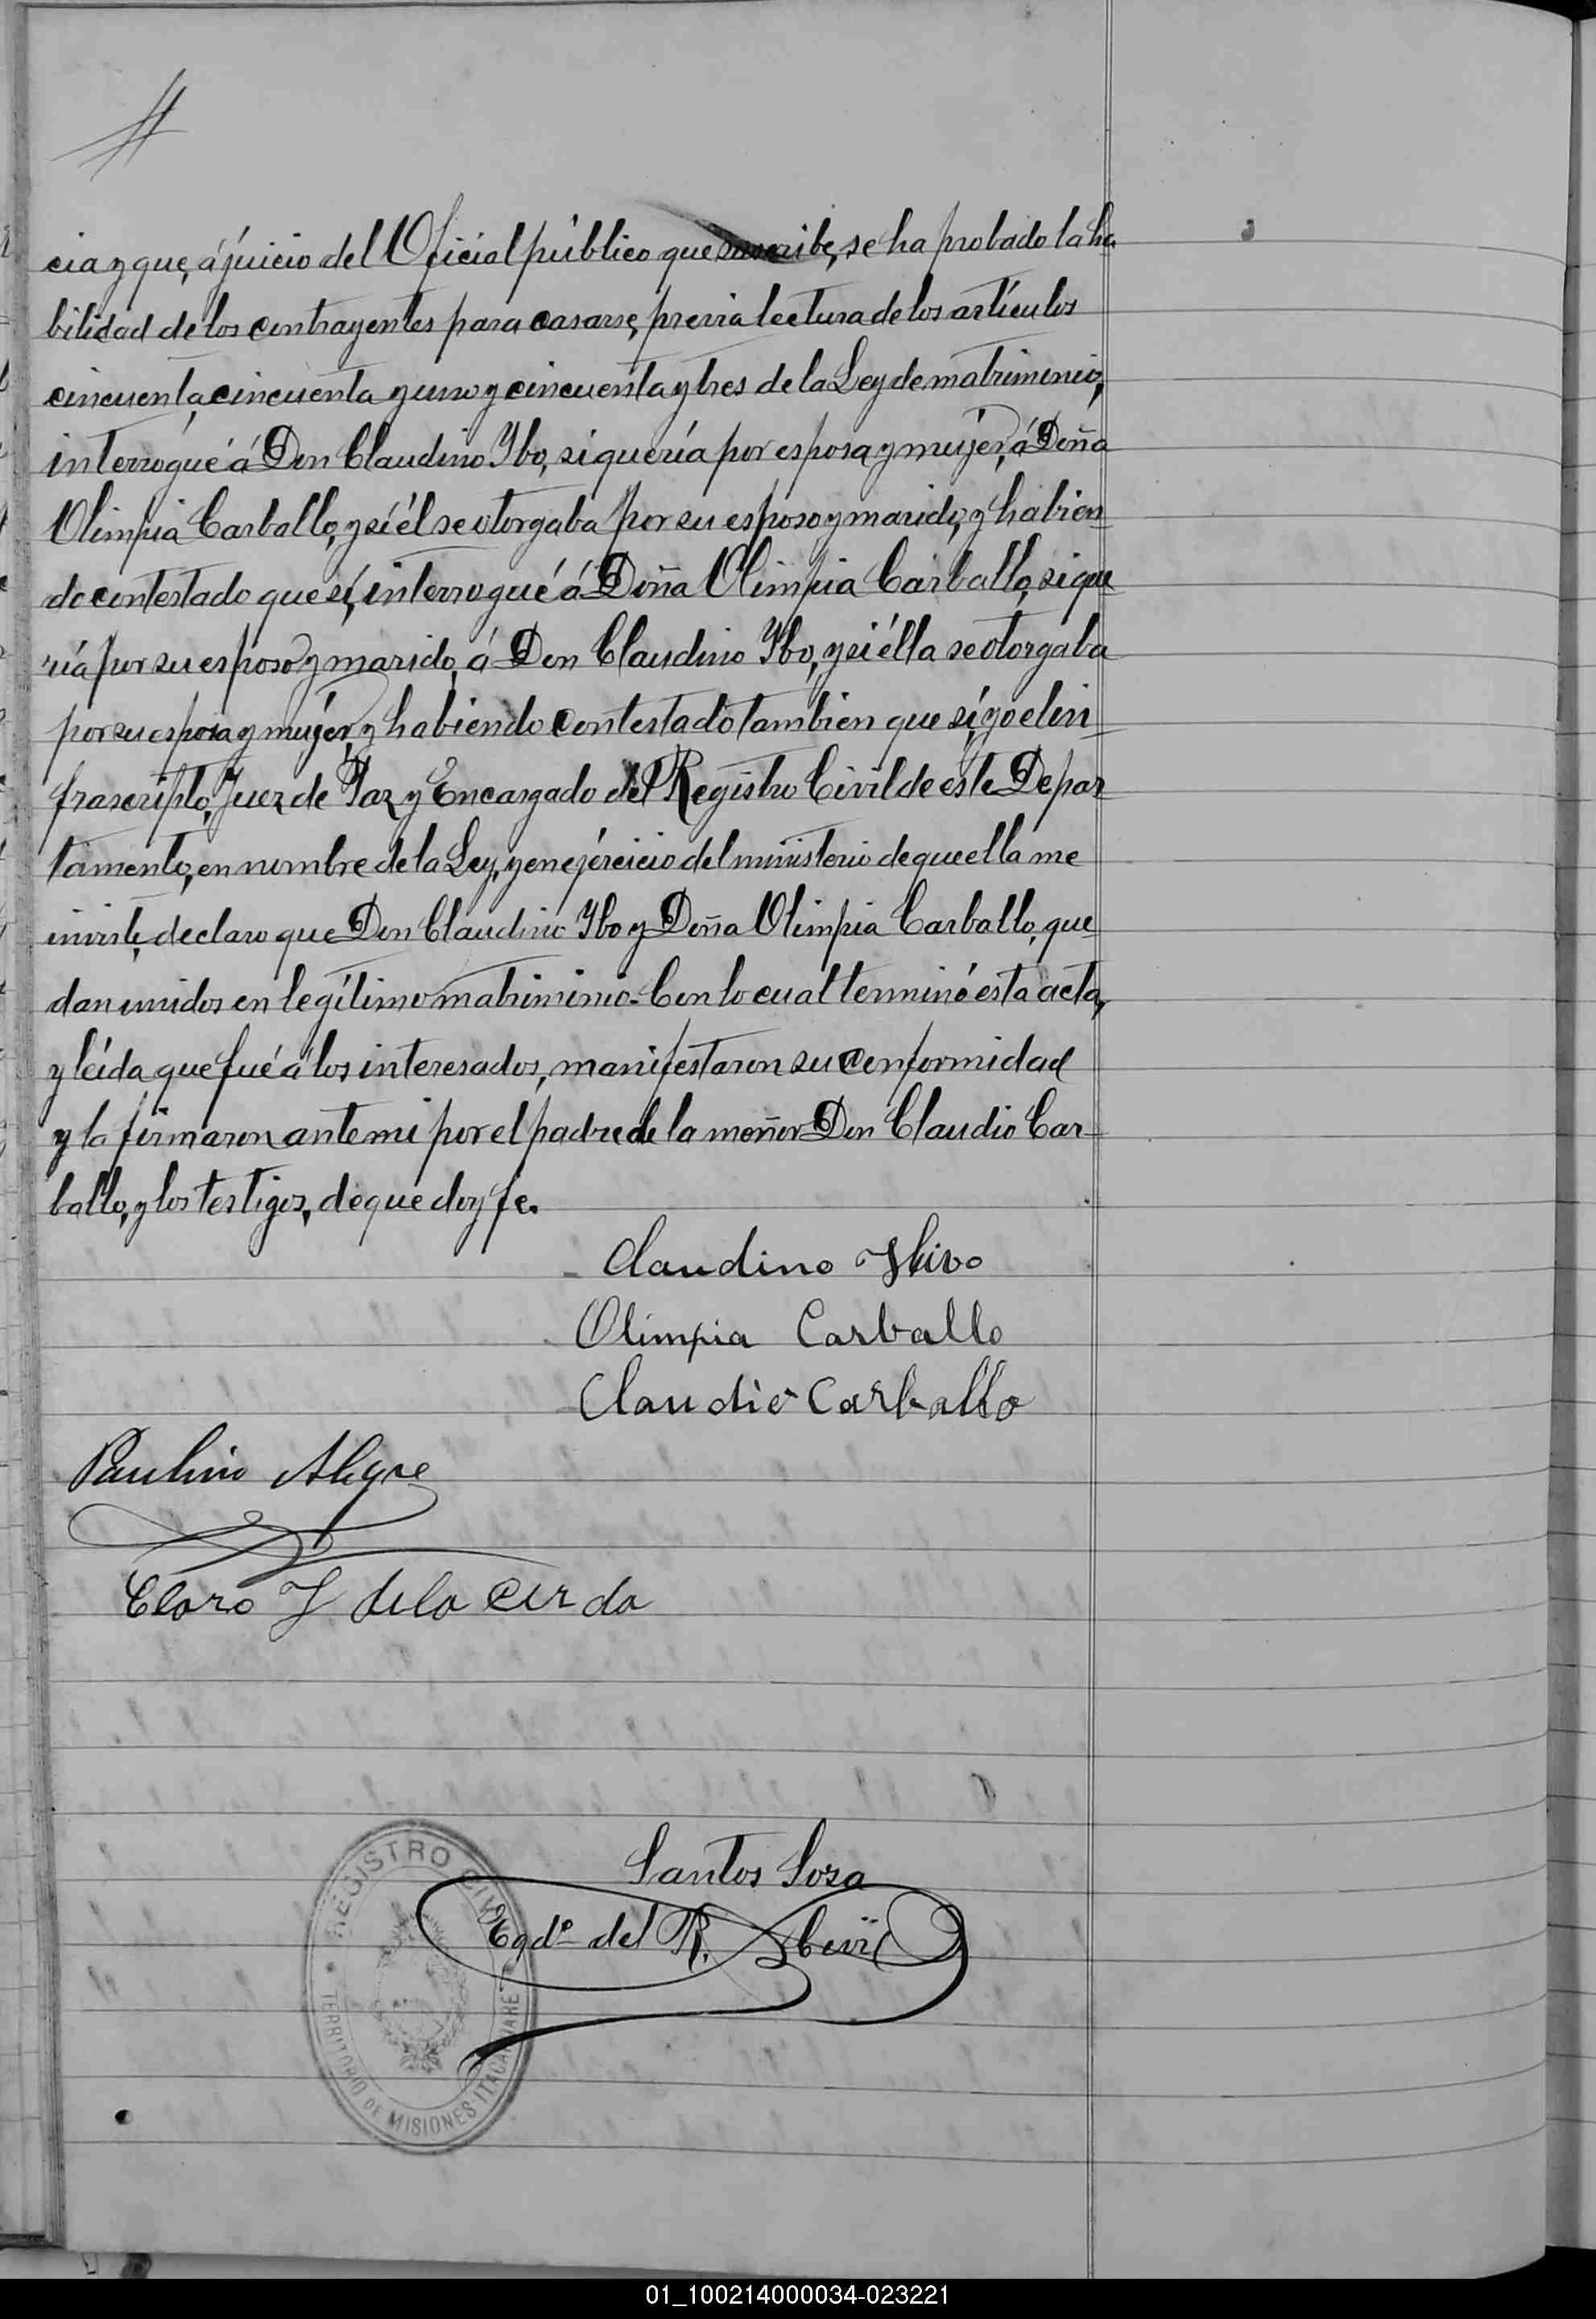 cia y que, á juicio del Oficial público que suscribe, se ha probado la ha
bilidad de los contrayentes para casarse, previa lectura de los artículos
cincuenta, cincuenta y uno y cincuenta y tres de la Ley de matrimonio,
interrogué á Don Claudino Ybo, si quería por esposa y mujer, á Doña
Olimpia Carballo, y si él se otorgaba por su esposo y marido, y habien
do contestado que sí, interrogué á Doña Olimpia Carballo, si que
ría por su esposo y marido, á Don Claudino Ybo, y si élla se otorgaba
por su esposa y mujer, y habiendo contestado tambien que sí, yo el in
frascripto, Juez de Paz y Encargado del Registro Civil de éste Depar
tamento, en nombre de la Ley, y en ejércicio del ministerio de que ella me
inviste, declaro que Don Claudino Ybo y Doña Olimpia Carballo, que
dan unidos en legítimo matrimonio. Con lo cual terminó ésta acta,
y leída que fué á los interesados, manifestaron su conformidad
y la firmaron ante mi por el padre de la menor Don Claudio Car-
ballo, y los testigos, de que doy fe.
Claudino
Olimpia Carballo
Claudio Carballo
Paulino Alegre
Claro Y de la Cerda
Santos Sosa
Egdo. del R. Civil
REGISTRO CIVIL
TERRITORIO DE MISIONES ITACARUARE
01_100214000034-023221